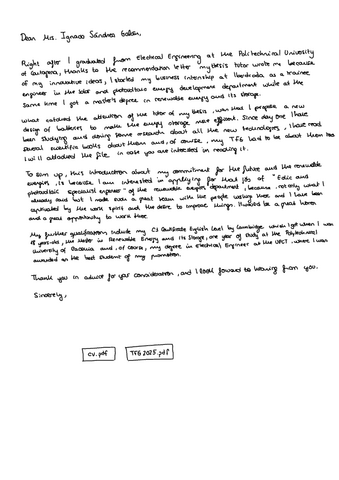 Dear Mrs. Ignacio Sánchez Galán,
Right after I graduated from Electrical Engineering at the Polytechnical University
of Cartagena, thanks to the recommendation letter my thesis tutor wrote me because
of my innovative ideas, I started my business internship at Iberdrola as a trainee
engineer in the and photovoltaic energy development department while at the
same time I got a master's degree in renewable energy and its storage.
What catched the attention of the tutor of my thesis, was that I propose a new
design of batteries to make the energy storage more efficient. Since day one I have
been studying and doing some research about all the new technologies, I have read
several scientific books about them and, of course, my TFG had to be about them too
I will attached the file, in case you are interested in reading it.
To sum up, this introduction about my commitment for the future and the renewable
energies, is because I am interested in applying for that job of "Eolic and
photovoltaic specialist engineer" of the renewable energies department, because, not only what I
already said but I made even a great team with the people working there and I have been
captivated by the work spirit and the desire to improve things. It would be a great honor
and a great opportunity to work there.
My further qualifications include my C1 Certificate English Level by Cambridge which I got when I was
18 years-old, the Master in Renewable Energy and its Storage, one year of study at the Polytechnical
University of and, of course, my degree in Electrical Engineer at the UPCT where I was
awarded as the best student of my promotion.
Thank you in advance for your consideration, and I look forward to hearing from you.
Sincerely,
cv.pdf TFG 2025.pdf